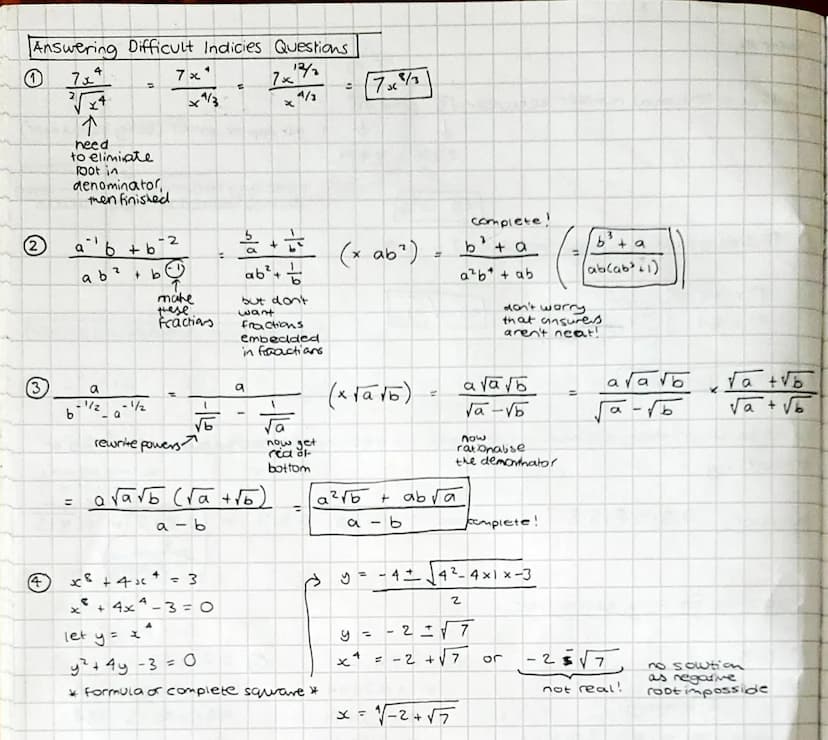 Answering Difficult Indicies Questions
① 7x⁴ / ³√x⁴ = 7x⁴ / x^(4/3) = 7x^(12/3) / x^(4/3) = 7x^(8/3)
need
to elimiate
root in
denominator,
then finished
complete!
② (a⁻¹b + b⁻²) / (ab² + b⁻¹) = (b/a + 1/b²) / (ab² + 1/b) (× ab²) = (b³ + a) / (a²b⁴ + ab) (= (b³ + a) / (ab(ab³+1)))
make
these
fractions
but don't
want
fractions
embedded
in fractions
don't worry
that answers
aren't neat!
③ a / (b^(-1/2) - a^(-1/2)) = a / (1/√b - 1/√a) (× √a√b) = a√a√b / (√a - √b) = a√a√b / (√a - √b) × (√a + √b) / (√a + √b)
rewrite powers
now get
rid of
bottom
now
rationalise
the denominator
= a√a√b (√a + √b) / (a - b) = (a²√b + ab√a) / (a - b) complete!
④ x⁸ + 4x⁴ = 3
x⁸ + 4x⁴ - 3 = 0
let y = x⁴
y² + 4y - 3 = 0
* formula or complete square *
y = (-4 ± √(4² - 4×1×-3)) / 2
y = -2 ± √7
x⁴ = -2 + √7 or -2 - √7
not real!
no solution
as negative
root impossible
x = ⁴√(-2 + √7)